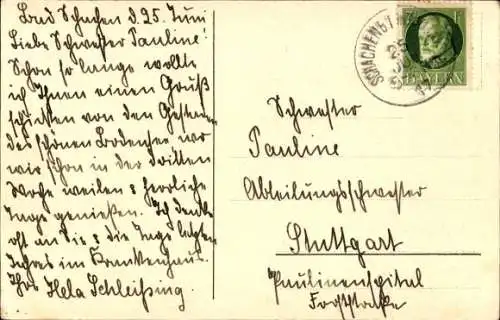 Bad Schachen d. 25. Juni
Liebe Schwester Pauline!
Schon so lange wollte
ich Ihnen einen Gruß
schicken von den Gestaden
des schönen Bodensee, wo
wir schon in der dritten
Woche weilen & herrliche
Tage genießen. Ich denke
oft an Sie & die Tage letzten
Jahres im Krankenhaus.
Ihre Hela Schleißing.
SCHACHEN
BAYERN
Schwester
Pauline
Abteilungsschwester
Stuttgart
Paulinenspital
Forststraße